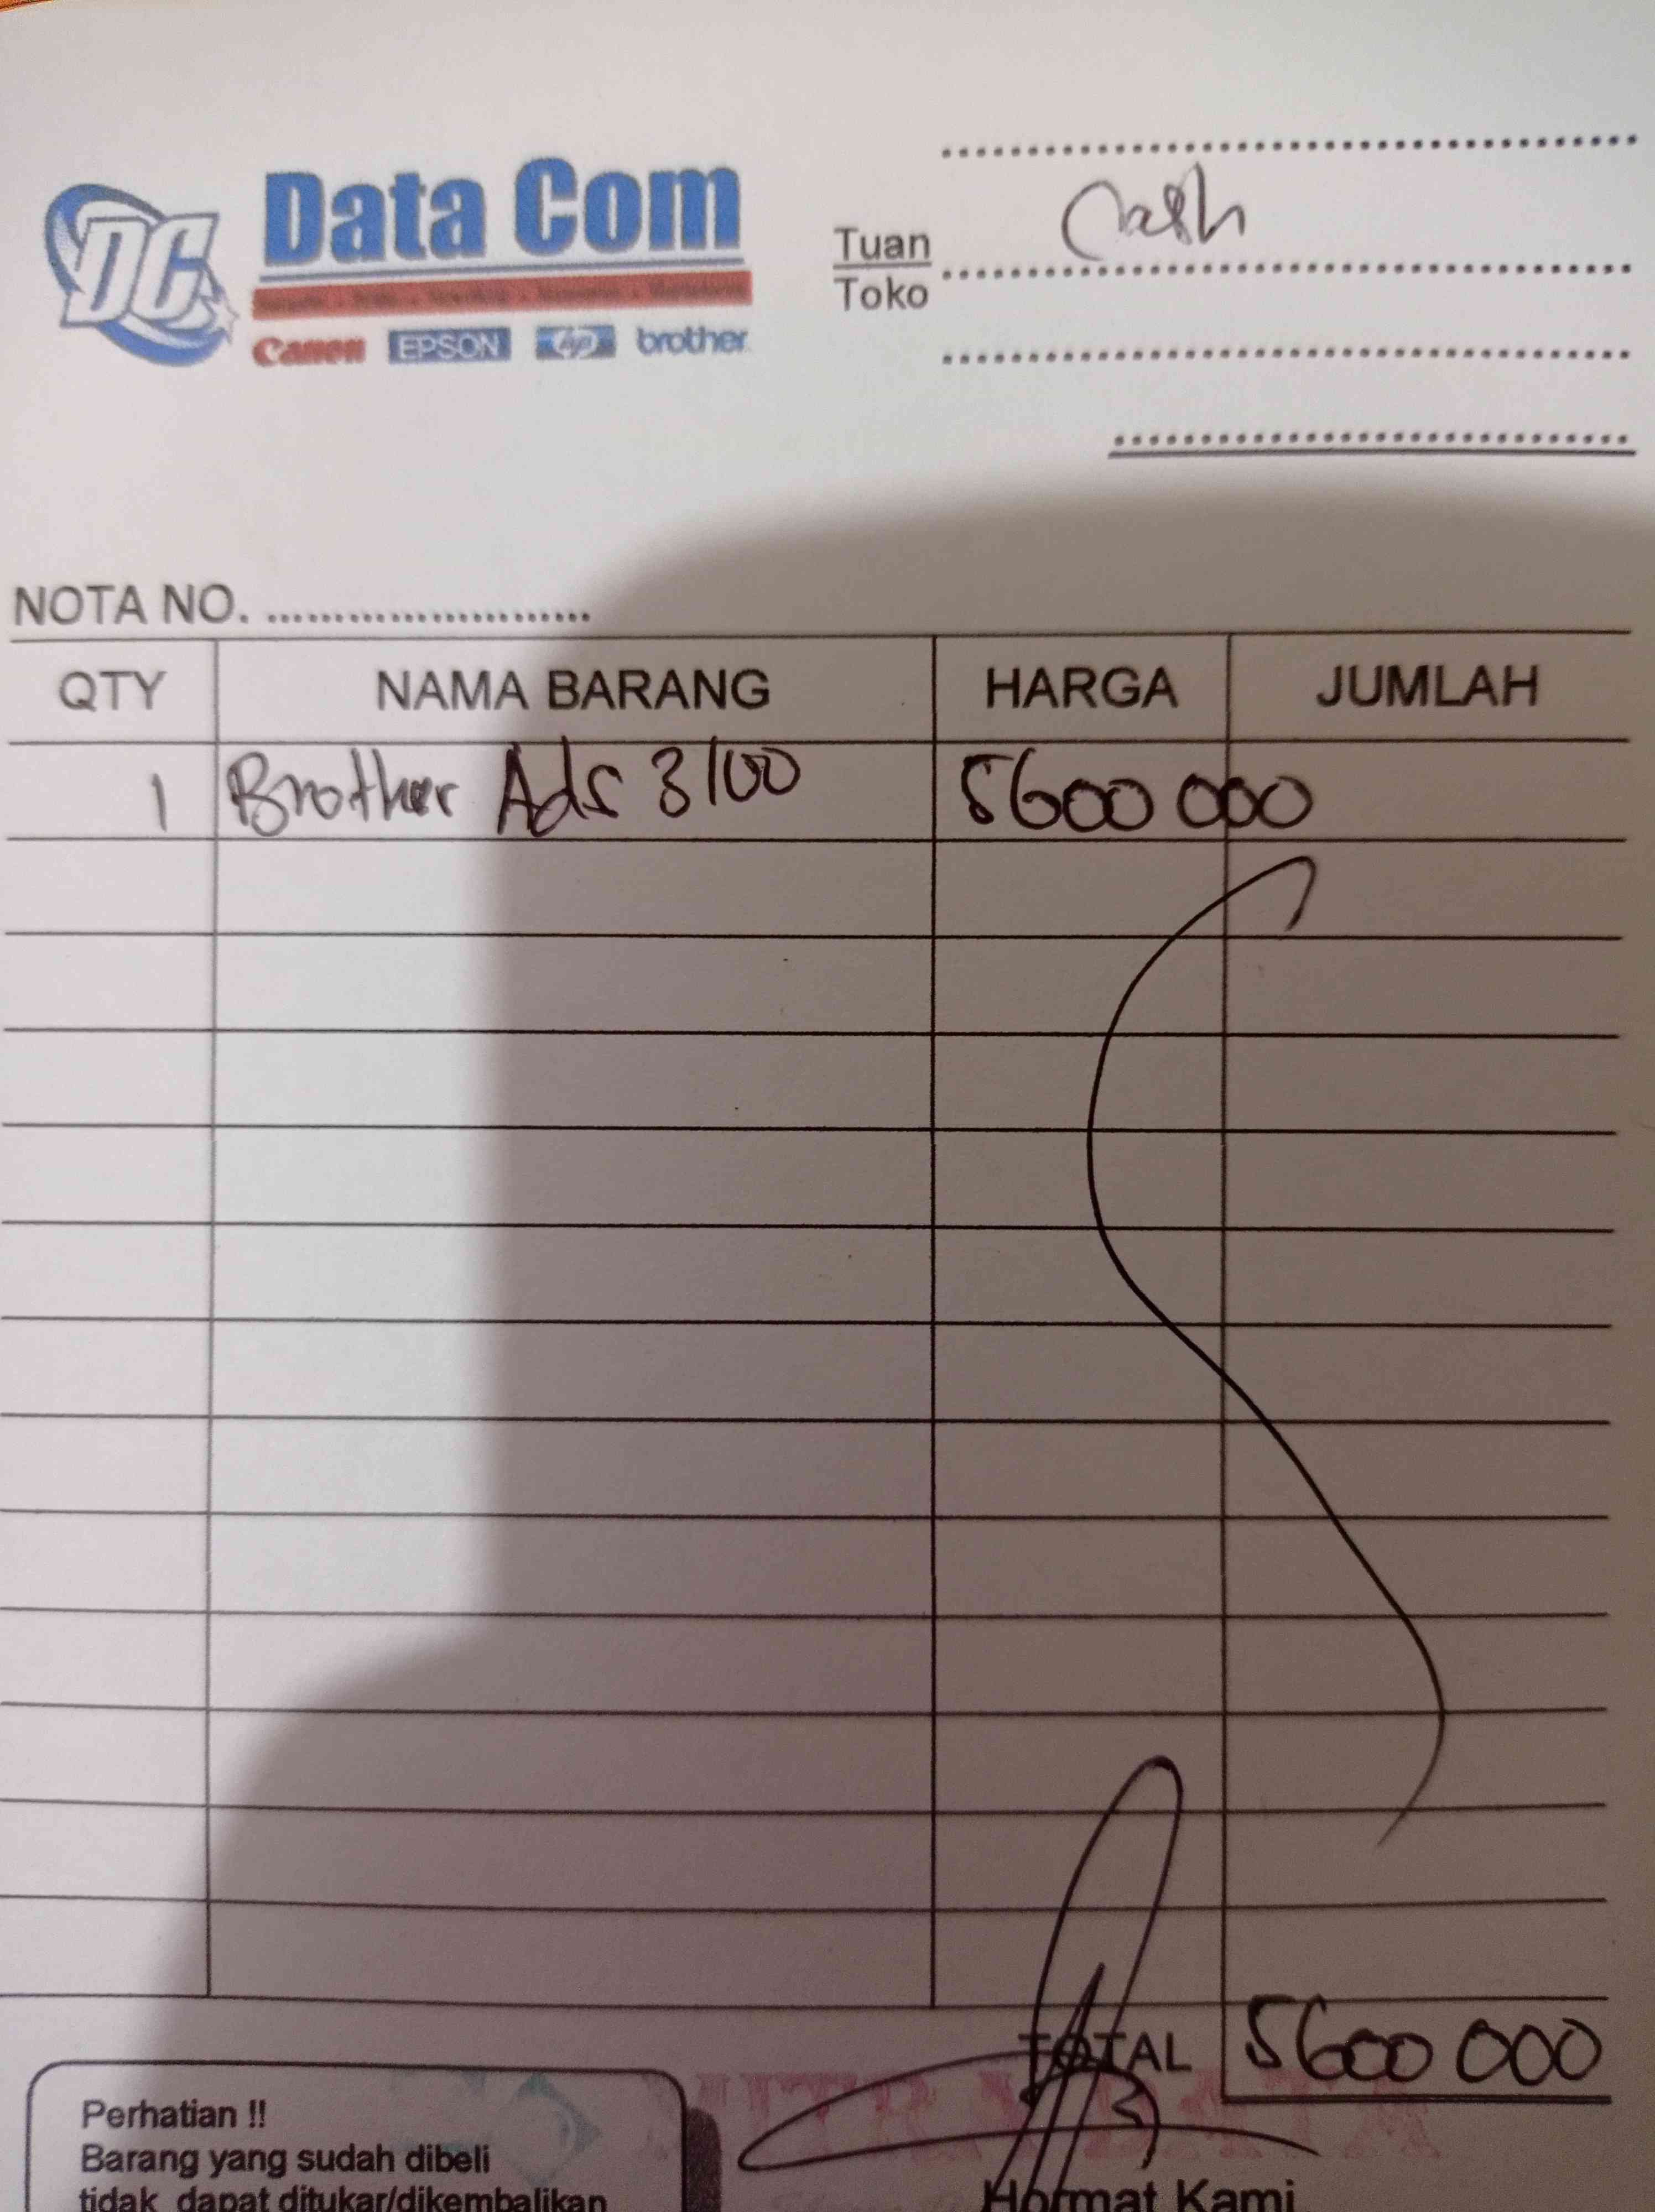 Data Com
DC
Canon EPSON hp brother
Cash
Tuan
Toko
NOTA NO. ........................
QTY NAMA BARANG HARGA JUMLAH
1 Brother Ads 3100 5600 000
TOTAL 5600 000
Perhatian !!
Barang yang sudah dibeli
tidak dapat ditukar/dikembalikan
Hormat Kami